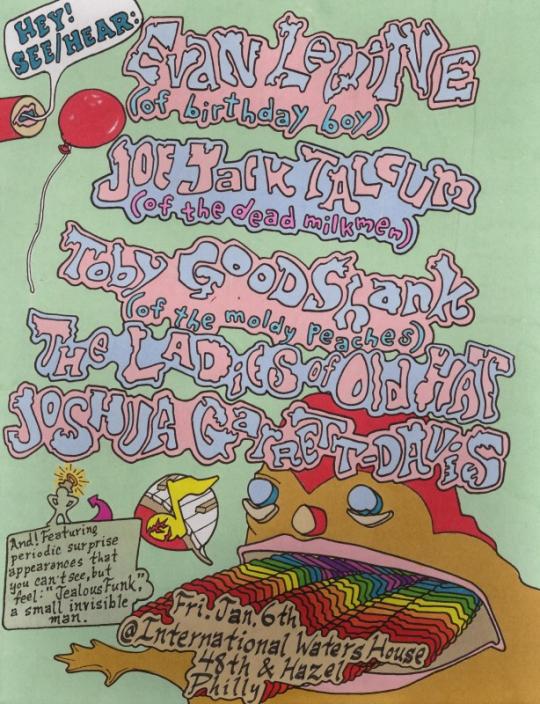 HEY!
SEE/HEAR:
Evan LeWiNE
(of birthday boy)
JOE JaCk TALCUM
(of the dead milkmen)
Toby GOODShank
(of the moldy Peaches)
The LADiES of Old HAT
JOSHUA GaRRETT-DAViS
And! Featuring
periodic surprise
appearances that
you can't see, but
feel: "Jealous Funk",
a small invisible
man.
Fri. Jan. 6th
@International Waters House
48th & Hazel
Philly